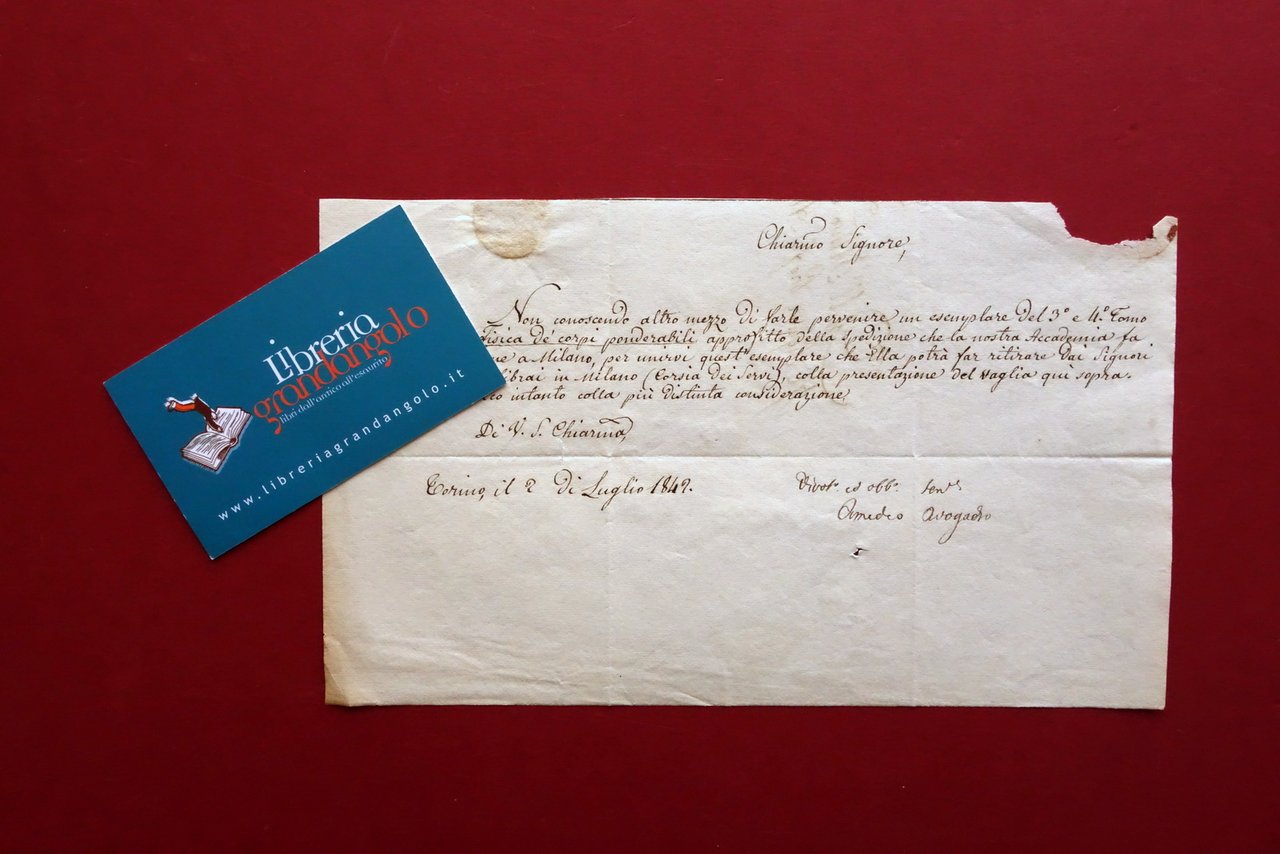 Libreria
grandangolo
libri dall'antico all'esaurito
www.libreriagrandangolo.it
Chiarmo Signore,
Non conoscendo altro mezzo di farle pervenire un esemplare del 3° e 4° Tomo
Fisica de' corpi ponderabili approfitto della spedizione che la nostra Accademia fa
a Milano, per unirvi quest'esemplare che Ella potrà far ritirare dai Signori
librai in Milano (Corsia dei Servi), colla presentazione del vaglia qui sopra.
intanto colla più distinta considerazione
Di V. S. Chiarma,
Torino, il 2 di Luglio 1842.
Divot° ed obb° serv.
Amedeo Avogadro